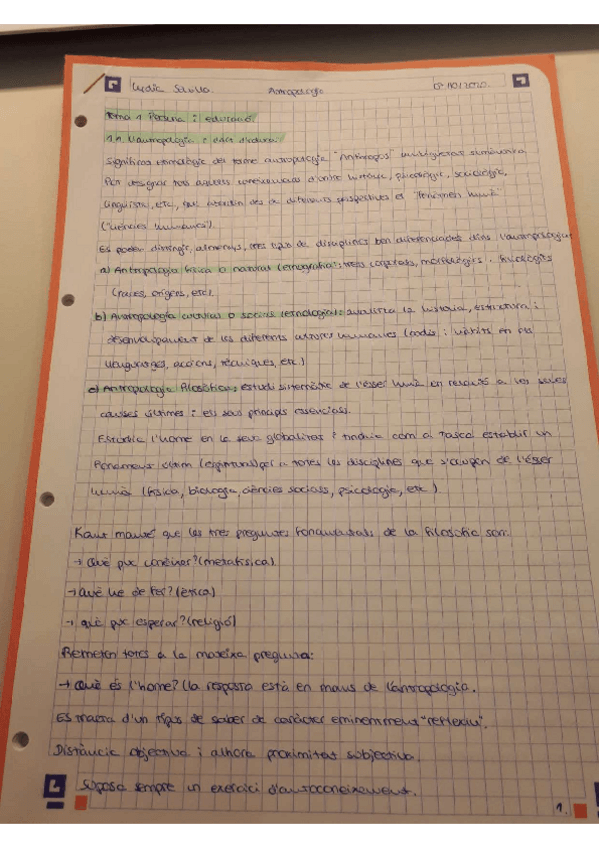 Antropologia
Tema 1 Persona i educació.
1.1. L'antropologia i
Significat etimològic del terme antropologia "Antropos"
Per designar tots aquells d'ordre històric, psicològic, sociològic,
lingüístic, etc., que des de diferents perspectives el "fenomen humà"
("ciències humanes").
Es poden distingir, almenys, tres tipus de disciplines ben diferenciades dins l'antropologia:
a) Antropologia física o natural (etnografia): morfològics i fisiològics
(races, orígens, etc).
b) Antropologia cultural o social (etnologia): analitza la història, estructura i
desenvolupament de les diferents cultures humanes (modes i en els
llenguatges, accions, tècniques, etc.)
c) Antropologia filosòfica: estudi sistemàtic de l'ésser humà en respecte a les seves
causes últimes i els seus principis essencials.
Estudia l'home en la seva globalitat i tindria com a tasca establir un
fonament últim (espiritual) per a totes les disciplines que s'ocupen de l'ésser
humà (física, biologia, ciències socials, psicologia, etc.)
Kant manté que les tres preguntes fonamentals de la filosofia són:
→ Què puc conèixer? (metafísica)
→ Què he de fer? (ètica)
→ què puc esperar? (religió)
Remeten totes a la mateixa pregunta:
→ Què és l'home? (la resposta està en mans de l'antropologia.
Es tracta d'un tipus de saber de caràcter eminentment "reflexiu".
Distància objectiva i alhora proximitat subjectiva.
Suposa sempre un exercici d'autoconeixement.
1.